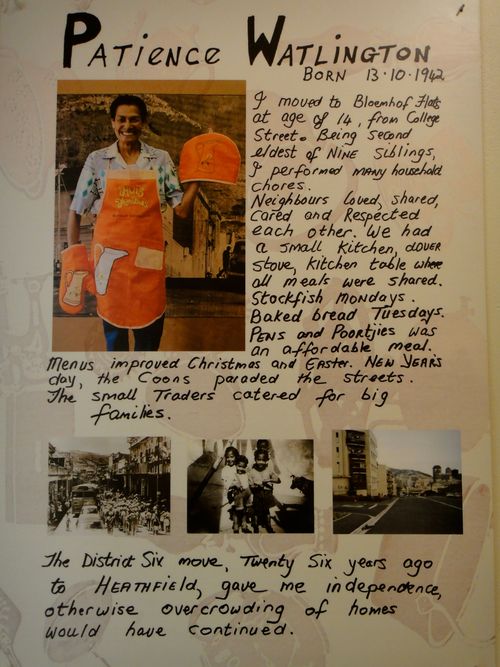 PATIENCE WATLINGTON
BORN 13.10.1942
I moved to Bloemhof Flats
at age of 14, from College
Street. Being second
eldest of NINE Siblings,
I performed MANY household
chores.
Neighbours loved, shared,
cared and Respected
each other. We had
a small kitchen, dover
stove, kitchen table where
all meals were shared.
Stockfish Mondays.
Baked bread Tuesdays.
PENS and Poortjies was
an affordable meal.
Menus improved Christmas and Easter. NEW YEARS
day, the Coons paraded the streets.
The small Traders catered for big
families.
The District Six move, Twenty Six years ago
to HEATHFIELD, gave me independence,
otherwise overcrowding of homes
would have continued.